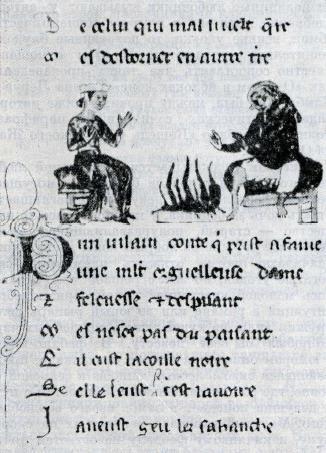 D e celui qui mal li veult q̃re
M es destorner en autre t̃re
D un vilain conte q̃ prist a fame
une mlt orguelleuse dame
⁊ felenesse ⁊ despisant
M es ne sot pas du paisant
Q il eust la coille noire
Se elle leust cest la voire
J a neust geu lez sa hanche